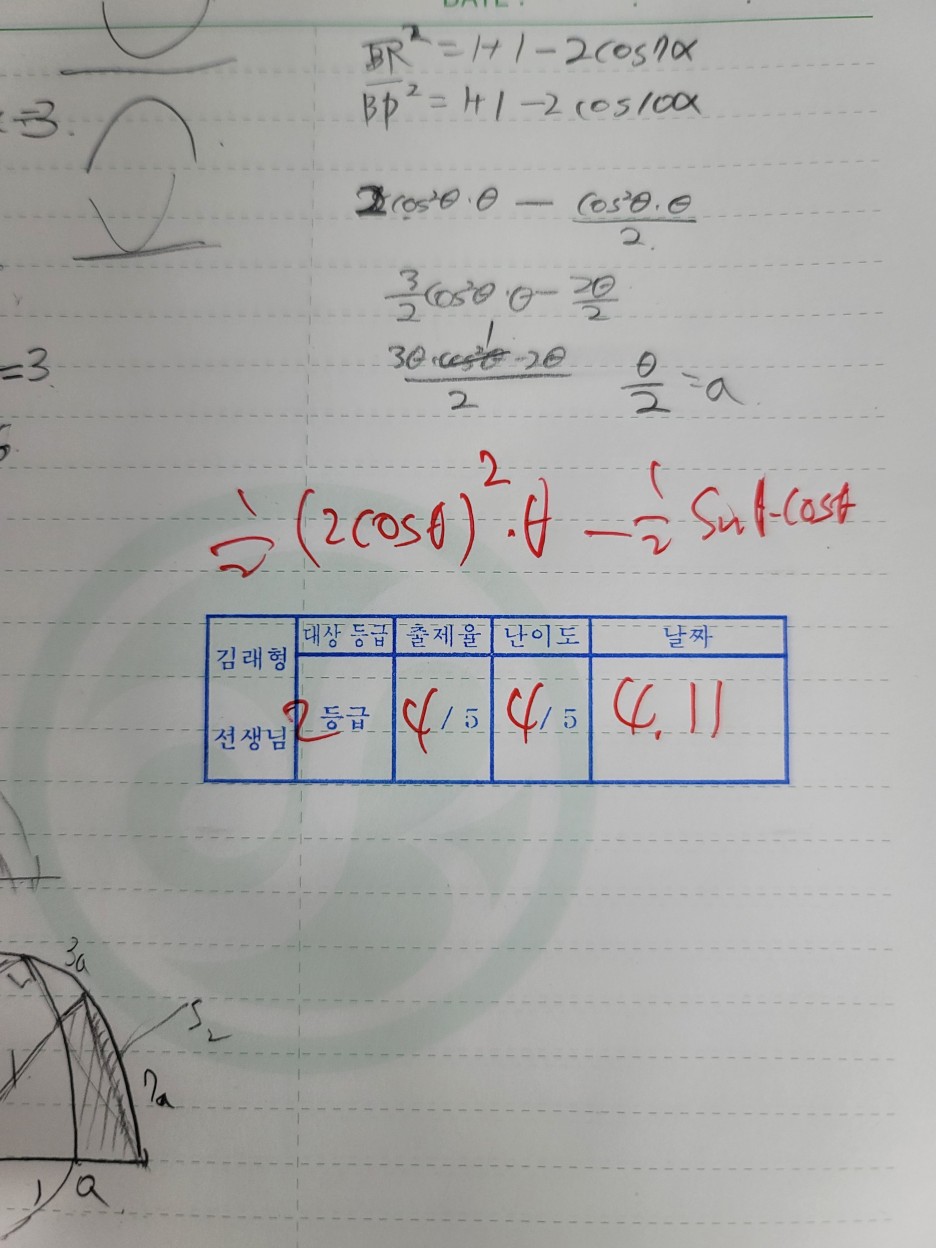 DATE : . .
BR² = 1+1 - 2cos7α
BP² = 1+1 - 2cos10α
=3.
2cos²θ·θ - cos²θ·θ/2
3/2 cos²θ·θ - 2θ/2
=3
3θ·cos²θ 1 - 2θ/2 θ/2 = a
1/2 (2cosθ)²·θ - 1/2 sinθ·cosθ
김래형 선생님
대상 등급 출제율 난이도 날짜
2등급 4/5 4/5 4.11
3a
S₂
7a
1 a